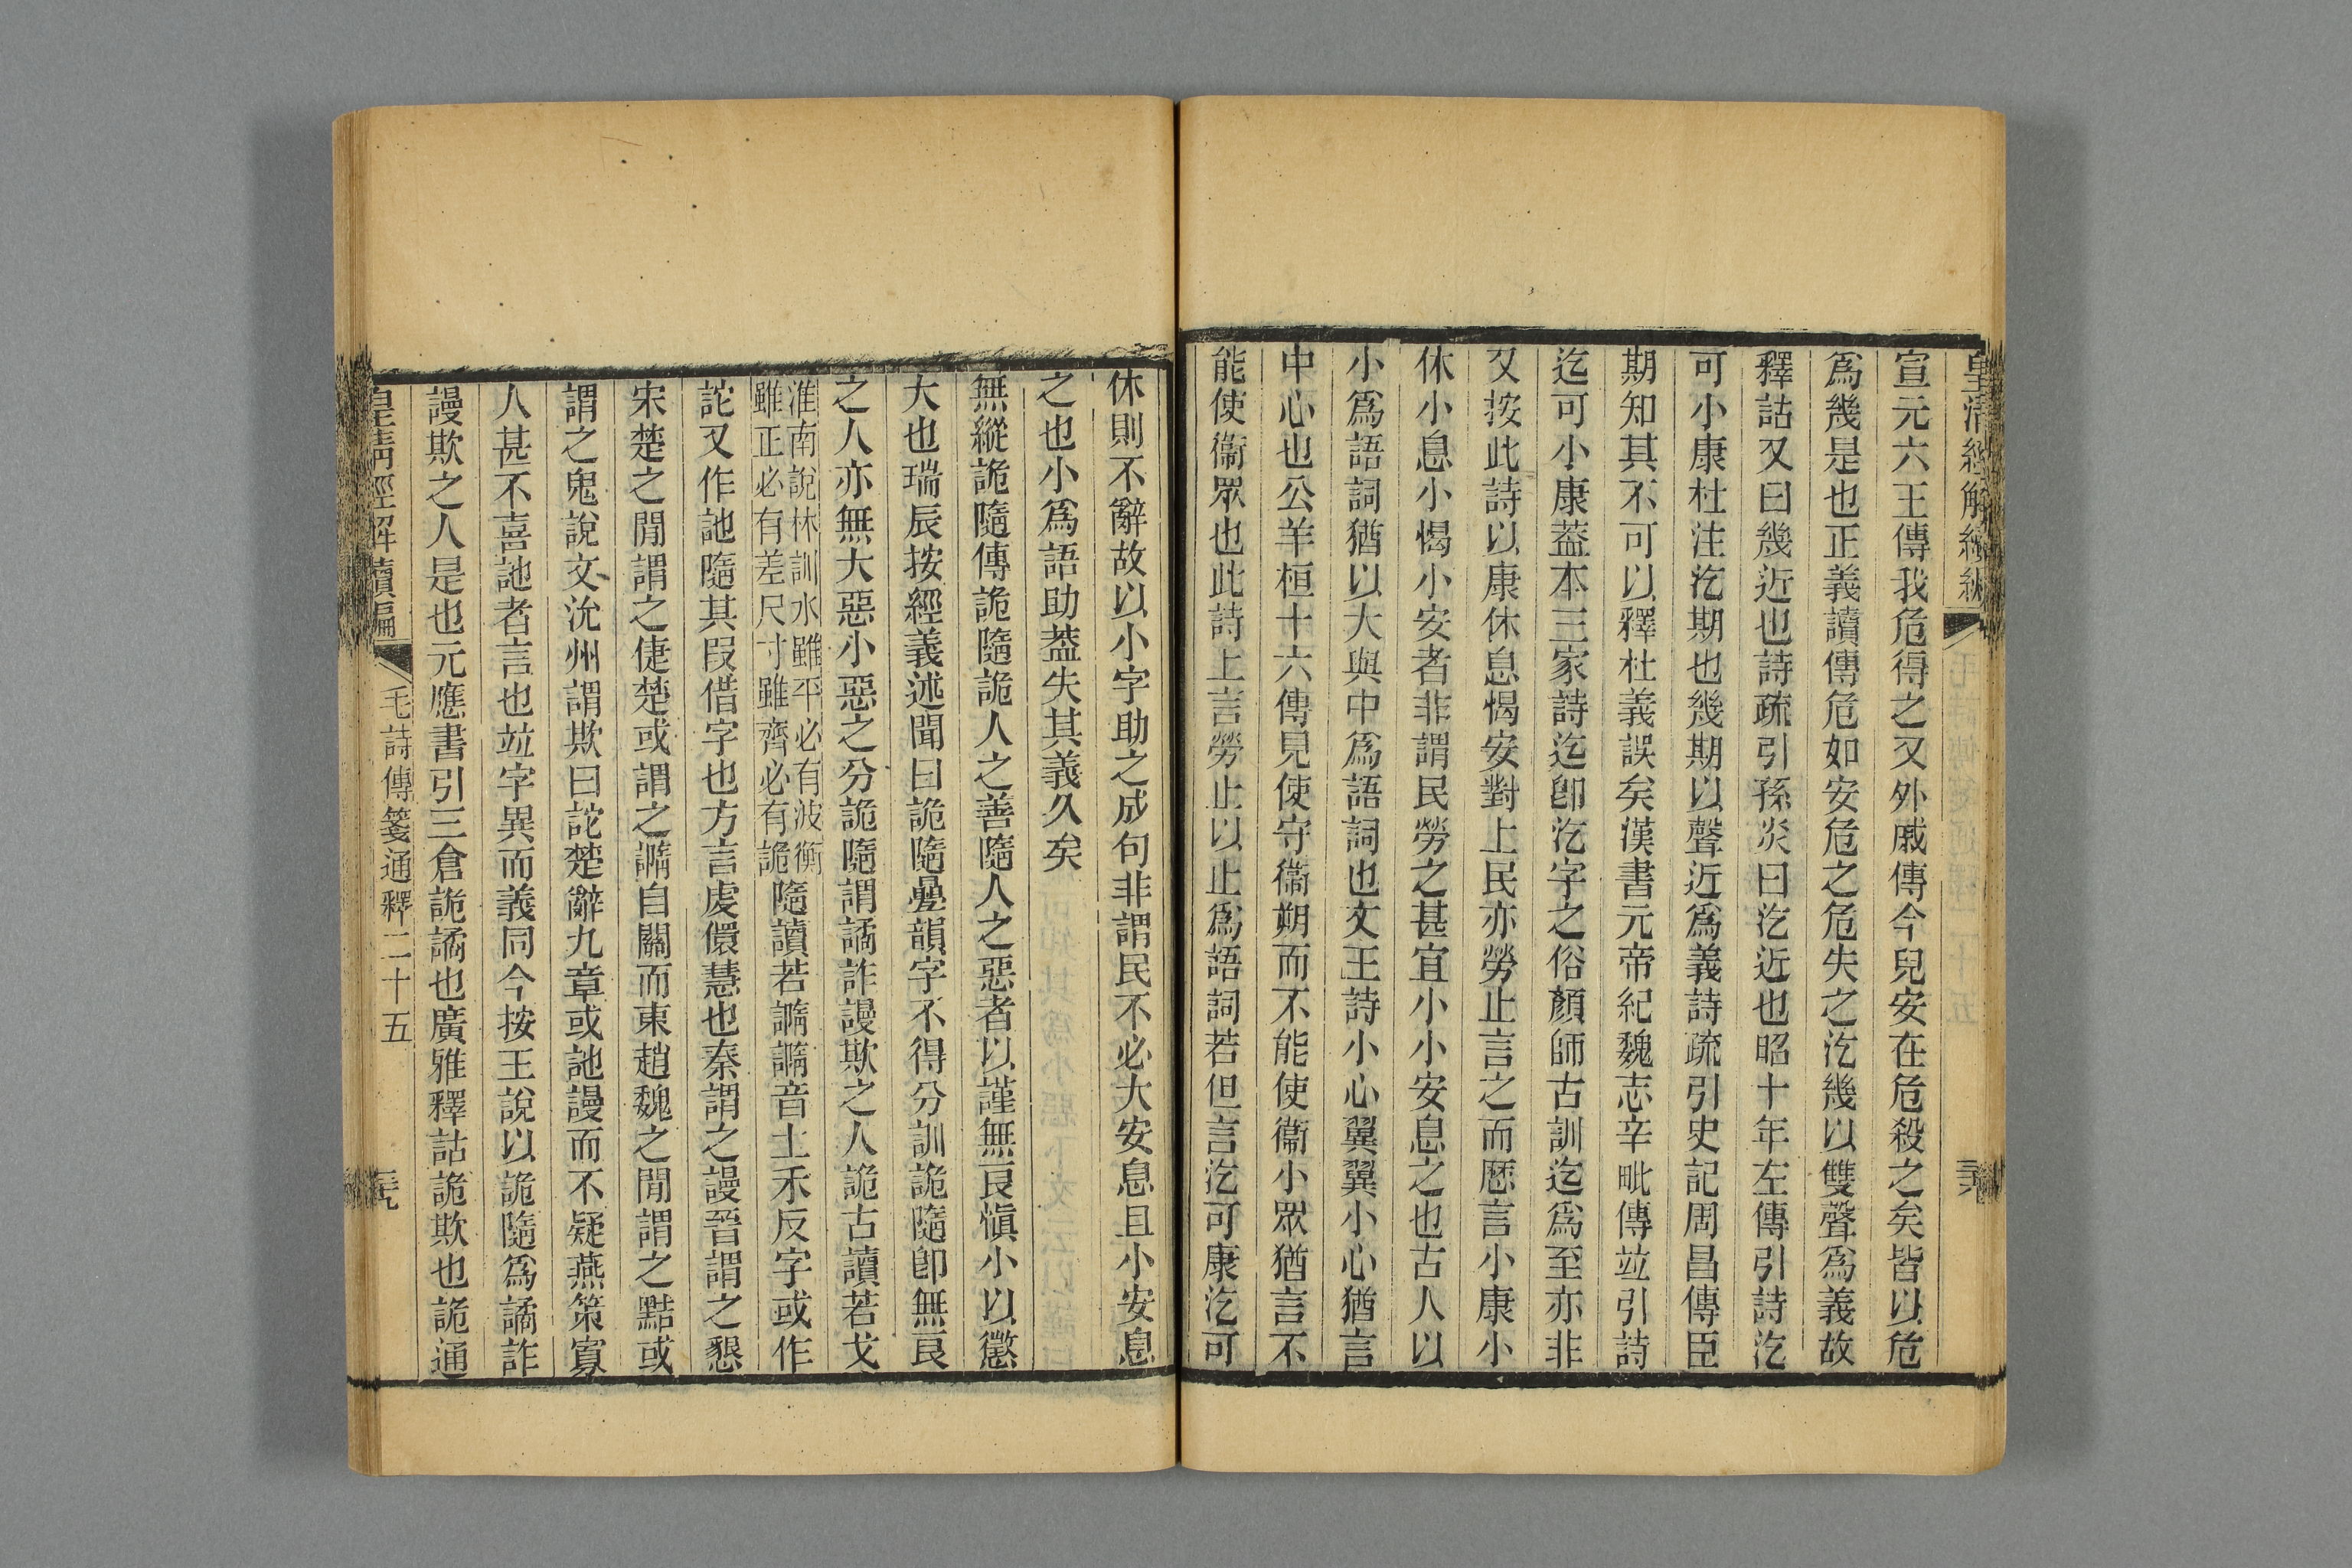 皇淸經解續編
宣元六王傳我危得之又外戚傳今兒安在危殺之矣皆以危
爲幾是也正義讀傳危如安危之危失之汔幾以雙聲爲義故
釋詁又曰幾近也詩疏引孫炎曰汔近也昭十年左傳引詩汔
可小康杜注汔期也幾期以聲近爲義詩疏引史記周昌傳臣
期知其不可以釋杜義誤矣漢書元帝紀魏志辛毗傳竝引詩
迄可小康葢本三家詩迄卽汔字之俗顏師古訓迄爲至亦非
又按此詩以康休息愒安對上民亦勞止言之而厯言小康小
休小息小愒小安者非謂民勞之甚宜小小安息之也古人以
小爲語詞猶以大與中爲語詞也文王詩小心翼翼小心猶言
中心也公羊桓十六傳見使守衞朔而不能使衞小眾猶言不
能使衞眾也此詩上言勞止以止爲語詞若但言汔可康汔可
休則不辭故以小字助之成句非謂民不必大安息且小安息
之也小爲語助葢失其義久矣
無縱詭隨傳詭隨詭人之善隨人之惡者以謹無良愼小以懲
大也瑞辰按經義述聞曰詭隨疊韻字不得分訓詭隨卽無良
之人亦無大惡小惡之分詭隨謂譎詐謾欺之人詭古讀若戈
淮南說林訓水雖平必有波衡
雖正必有差尺寸雖齊必有詭
隨讀若譌譌音土禾反字或作
訑又作訑隨其叚借字也方言虔儇慧也秦謂之謾晉謂之懇
宋楚之閒謂之倢楚或謂之譌自關而東趙魏之閒謂之黠或
謂之鬼說文沇州謂欺曰詑楚辭九章或訑謾而不疑燕策寡
人甚不喜訑者言也竝字異而義同今按王說以詭隨爲譎詐
謾欺之人是也元應書引三倉詭譎也廣雅釋詁詭欺也詭通
皇淸經解續編
毛詩傳箋通釋二十五